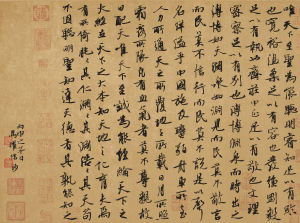 唯天下至聖為能聰明睿知足以有臨
也寬裕溫柔足以有容也發強剛毅
足以有執也齊莊中正足以有敬也文理
密察足以有別也溥博淵泉而時出之
溥博如天淵泉如淵見而民莫不敬言
而民莫不信行而民莫不說是以聲
名洋溢乎中國施及蠻貊舟車所至
人力所通天之所覆地之所載日月所照
霜露所隊凡有血氣者莫不尊親故
曰配天唯天下至誠為能經綸天下之
大經立天下之大本知天地之化育夫焉
有所倚肫肫其仁淵淵其淵浩浩其天苟
不固聰明聖知達天德者其孰能知之